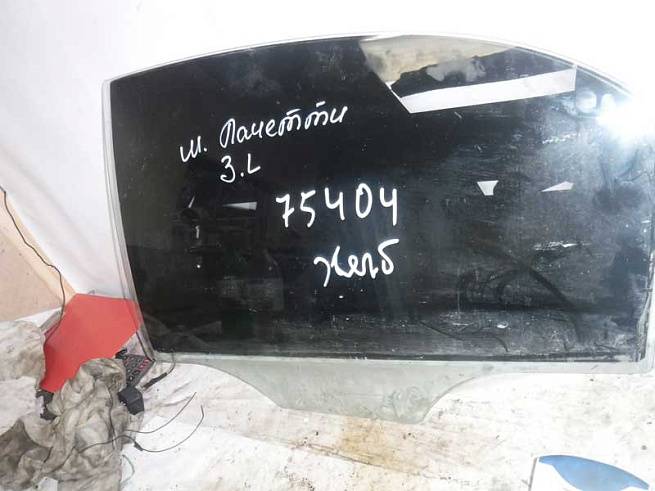 ш. Лачетти
З.L
75404
хетб